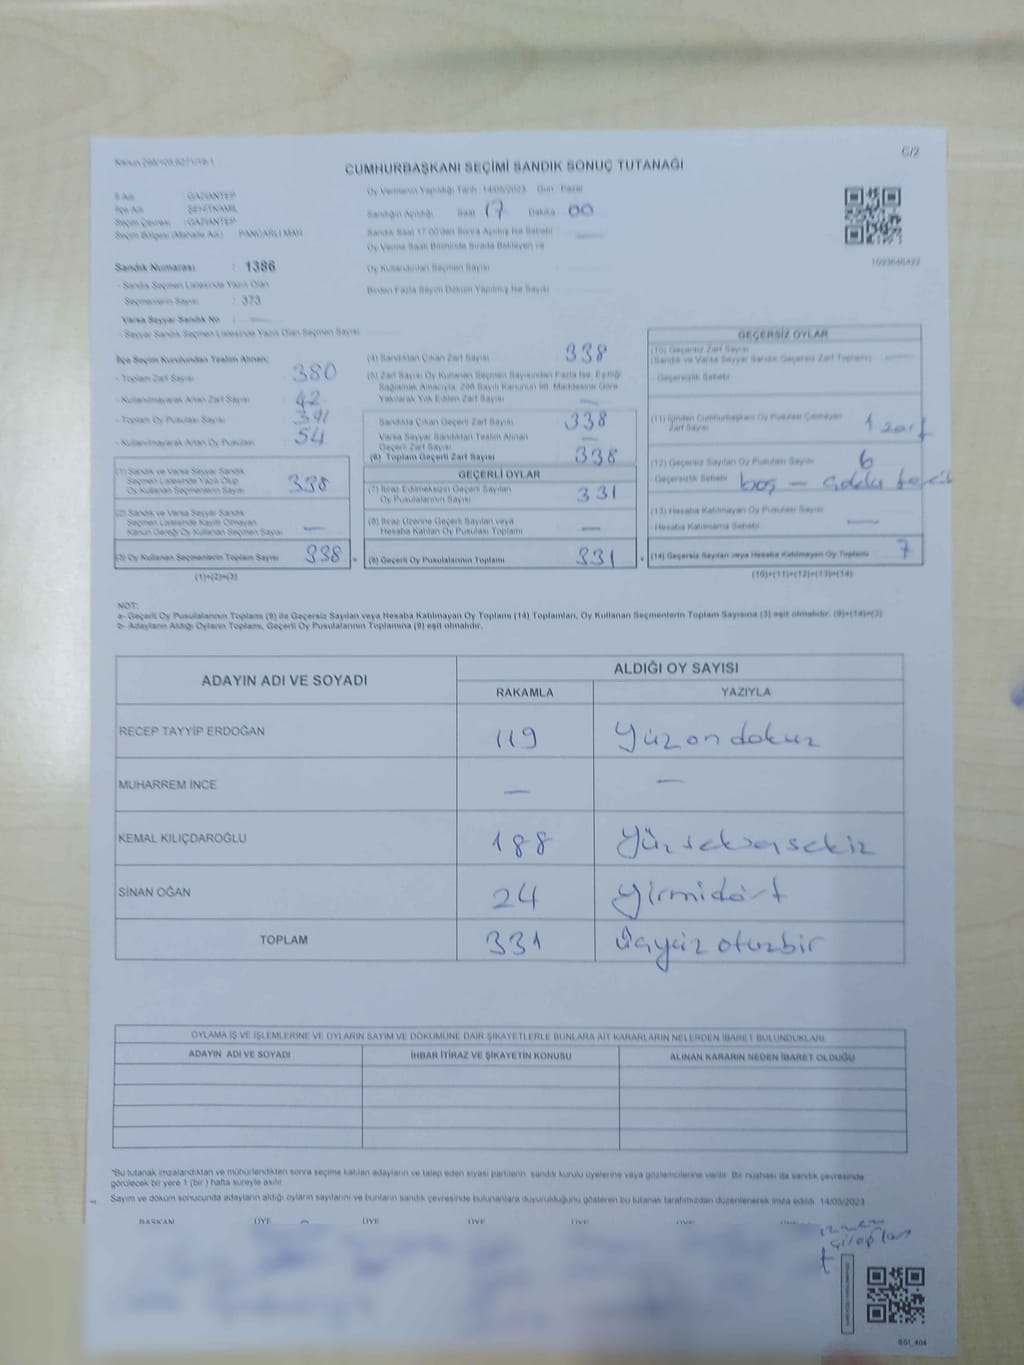 Kanun 298/105,6271/19-1
CUMHURBAŞKANI SEÇİMİ SANDIK SONUÇ TUTANAĞI
C/2
İl Adı : GAZİANTEP
İlçe Adı : ŞEHİTKAMİL
Seçim Çevresi : GAZİANTEP
Seçim Bölgesi (Mahalle Adı) : PANCARLI MAH
Oy Vermenin Yapıldığı Tarih 14/05/2023 Gün : Pazar
Sandığın Açıldığı Saat 17 Dakika 00
Sandık Saat 17:00'den Sonra Açılmış İse Sebebi —
Oy Verme Saati Bitiminde Sırada Bekleyen ve
Oy Kullandırılan Seçmen Sayısı
Birden Fazla Sayım Döküm Yapılmış İse Sayısı
Sandık Numarası : 1386
- Sandık Seçmen Listesinde Yazılı Olan
Seçmenlerin Sayısı : 373
Varsa Seyyar Sandık No : —
- Seyyar Sandık Seçmen Listesinde Yazılı Olan Seçmen Sayısı
İlçe Seçim Kurulundan Teslim Alınan;
- Toplam Zarf Sayısı 380
- Kullanılmayarak Artan Zarf Sayısı 42
- Toplam Oy Pusulası Sayısı
- Kullanılmayarak Artan Oy Pusulası 54
(1) Sandık ve Varsa Seyyar Sandık
Seçmen Listesinde Yazılı Olup
Oy Kullanan Seçmenlerin Sayısı 338
(2) Sandık ve Varsa Seyyar Sandık
Seçmen Listesinde Kayıtlı Olmayan
Kanun Gereği Oy Kullanan Seçmen Sayısı —
(3) Oy Kullanan Seçmenlerin Toplam Sayısı 338
(1)+(2)=(3)
(4) Sandıktan Çıkan Zarf Sayısı 338
(5) Zarf Sayısı Oy Kullanan Seçmen Sayısından Fazla İse, Eşitliği
Sağlamak Amacıyla, 298 Sayılı Kanunun 98. Maddesine Göre
Yakılarak Yok Edilen Zarf Sayısı —
Sandıkta Çıkan Geçerli Zarf Sayısı 338
Varsa Seyyar Sandıktan Teslim Alınan
Geçerli Zarf Sayısı —
(6) Toplam Geçerli Zarf Sayısı 338
GEÇERLİ OYLAR
(7) İtiraz Edilmeksizin Geçerli Sayılan
Oy Pusulalarının Sayısı 331
(8) İtiraz Üzerine Geçerli Sayılan veya
Hesaba Katılan Oy Pusulası Toplamı —
(9) Geçerli Oy Pusulalarının Toplamı 331
GEÇERSİZ OYLAR
(10) Geçersiz Zarf Sayısı
(Sandık ve Varsa Seyyar Sandık Geçersiz Zarf Toplamı) —
- Geçersizlik Sebebi
(11) İçinden Cumhurbaşkanı Oy Pusulası Çıkmayan
Zarf Sayısı 1 zarf
(12) Geçersiz Sayılan Oy Pusulası Sayısı 6
- Geçersizlik Sebebi boş —
(13) Hesaba Katılmayan Oy Pusulası Sayısı —
- Hesaba Katılmama Sebebi
(14) Geçersiz Sayılan veya Hesaba Katılmayan Oy Toplamı 7
(10)+(11)+(12)+(13)=(14)
NOT:
a- Geçerli Oy Pusulalarının Toplamı (9) ile Geçersiz Sayılan veya Hesaba Katılmayan Oy Toplamı (14) Toplamları, Oy Kullanan Seçmenlerin Toplam Sayısına (3) eşit olmalıdır. (9)+(14)=(3)
b- Adayların Aldığı Oyların Toplamı, Geçerli Oy Pusulalarının Toplamına (9) eşit olmalıdır.
ADAYIN ADI VE SOYADI
ALDIĞI OY SAYISI
RAKAMLA YAZIYLA
RECEP TAYYİP ERDOĞAN 119 yüzondokuz
MUHARREM İNCE — —
KEMAL KILIÇDAROĞLU 188 yüzseksensekiz
SİNAN OĞAN 24 yirmidört
TOPLAM 331 üçyüzotuzbir
OYLAMA İŞ VE İŞLEMLERİNE VE OYLARIN SAYIM VE DÖKÜMÜNE DAİR ŞİKAYETLERLE BUNLARA AİT KARARLARIN NELERDEN İBARET BULUNDUKLARI
ADAYIN ADI VE SOYADI İHBAR İTİRAZ VE ŞİKAYETİN KONUSU ALINAN KARARIN NEDEN İBARET OLDUĞU
*Bu tutanak imzalandıktan ve mühürlendikten sonra seçime katılan adayların ve talep eden siyasi partilerin sandık kurulu üyelerine veya gözlemcilerine verilir. Bir nüshası da sandık çevresinde
görülecek bir yere 1 (bir ) hafta süreyle asılır.
Sayım ve döküm sonucunda adayların aldığı oyların sayılarını ve bunların sandık çevresinde bulunanlara duyurulduğunu gösteren bu tutanak tarafımızdan düzenlenerek imza edildi. 14/05/2023
BAŞKAN ÜYE ÜYE ÜYE ÜYE ÜYE